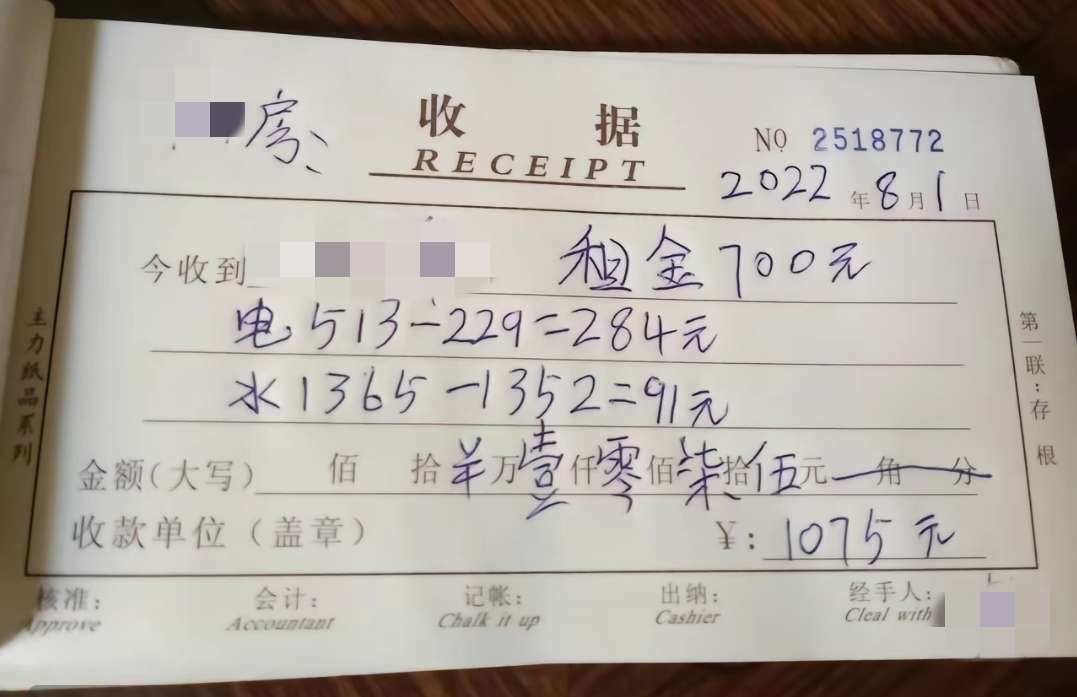 房
收 据
RECEIPT
№ 2518772
2022年8月1日
今收到 租金700元
电513-229=284元
水1365-1352=91元
金额(大写) 佰 拾 羊万壹仟零佰柒拾伍元 角 分
收款单位(盖章) ¥:1075元
核准: 会计: 记帐: 出纳: 经手人:
Approve Accountant Chalk it up Cashier Cleal with
主力纸品系列
第一联:存根